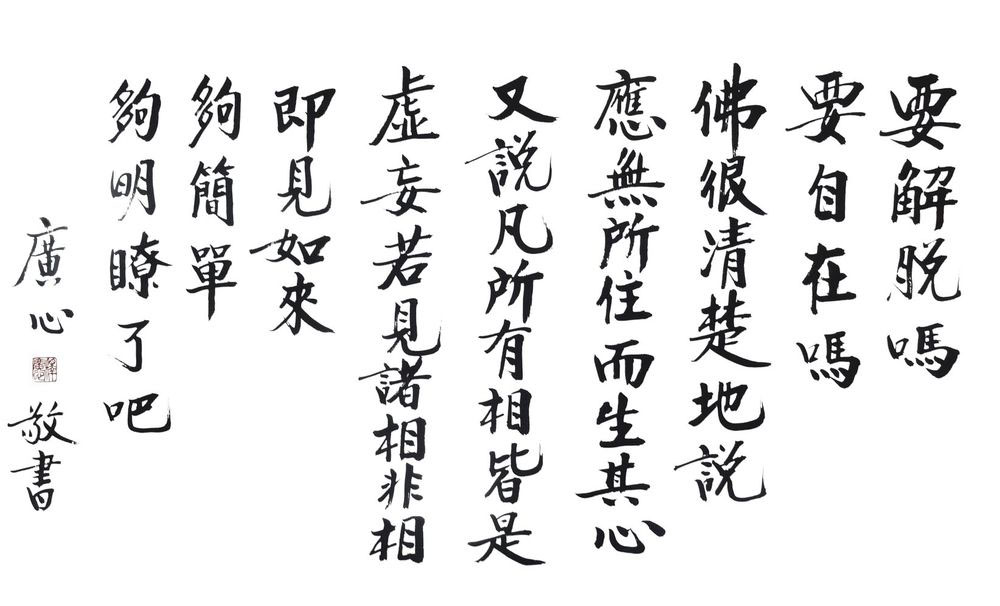 要解脱嗎
要自在嗎
佛很清楚地説
應無所住而生其心
又説凡所有相皆是
虛妄若見諸相非相
即見如來
夠簡單
夠明瞭了吧
廣心
敬書